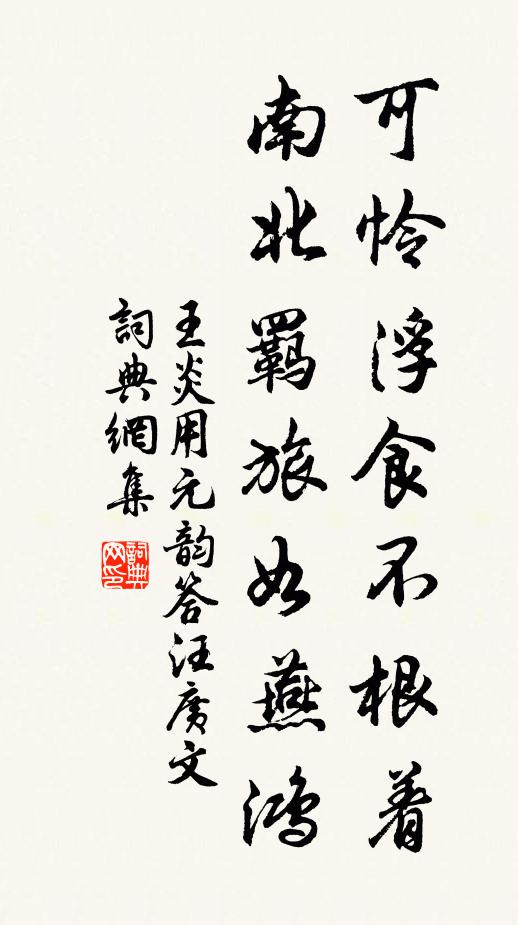 可怜浮食不根着
南北羁旅如燕鸿
王炎用元韵答汪廣文
詞典網集
詞典网印